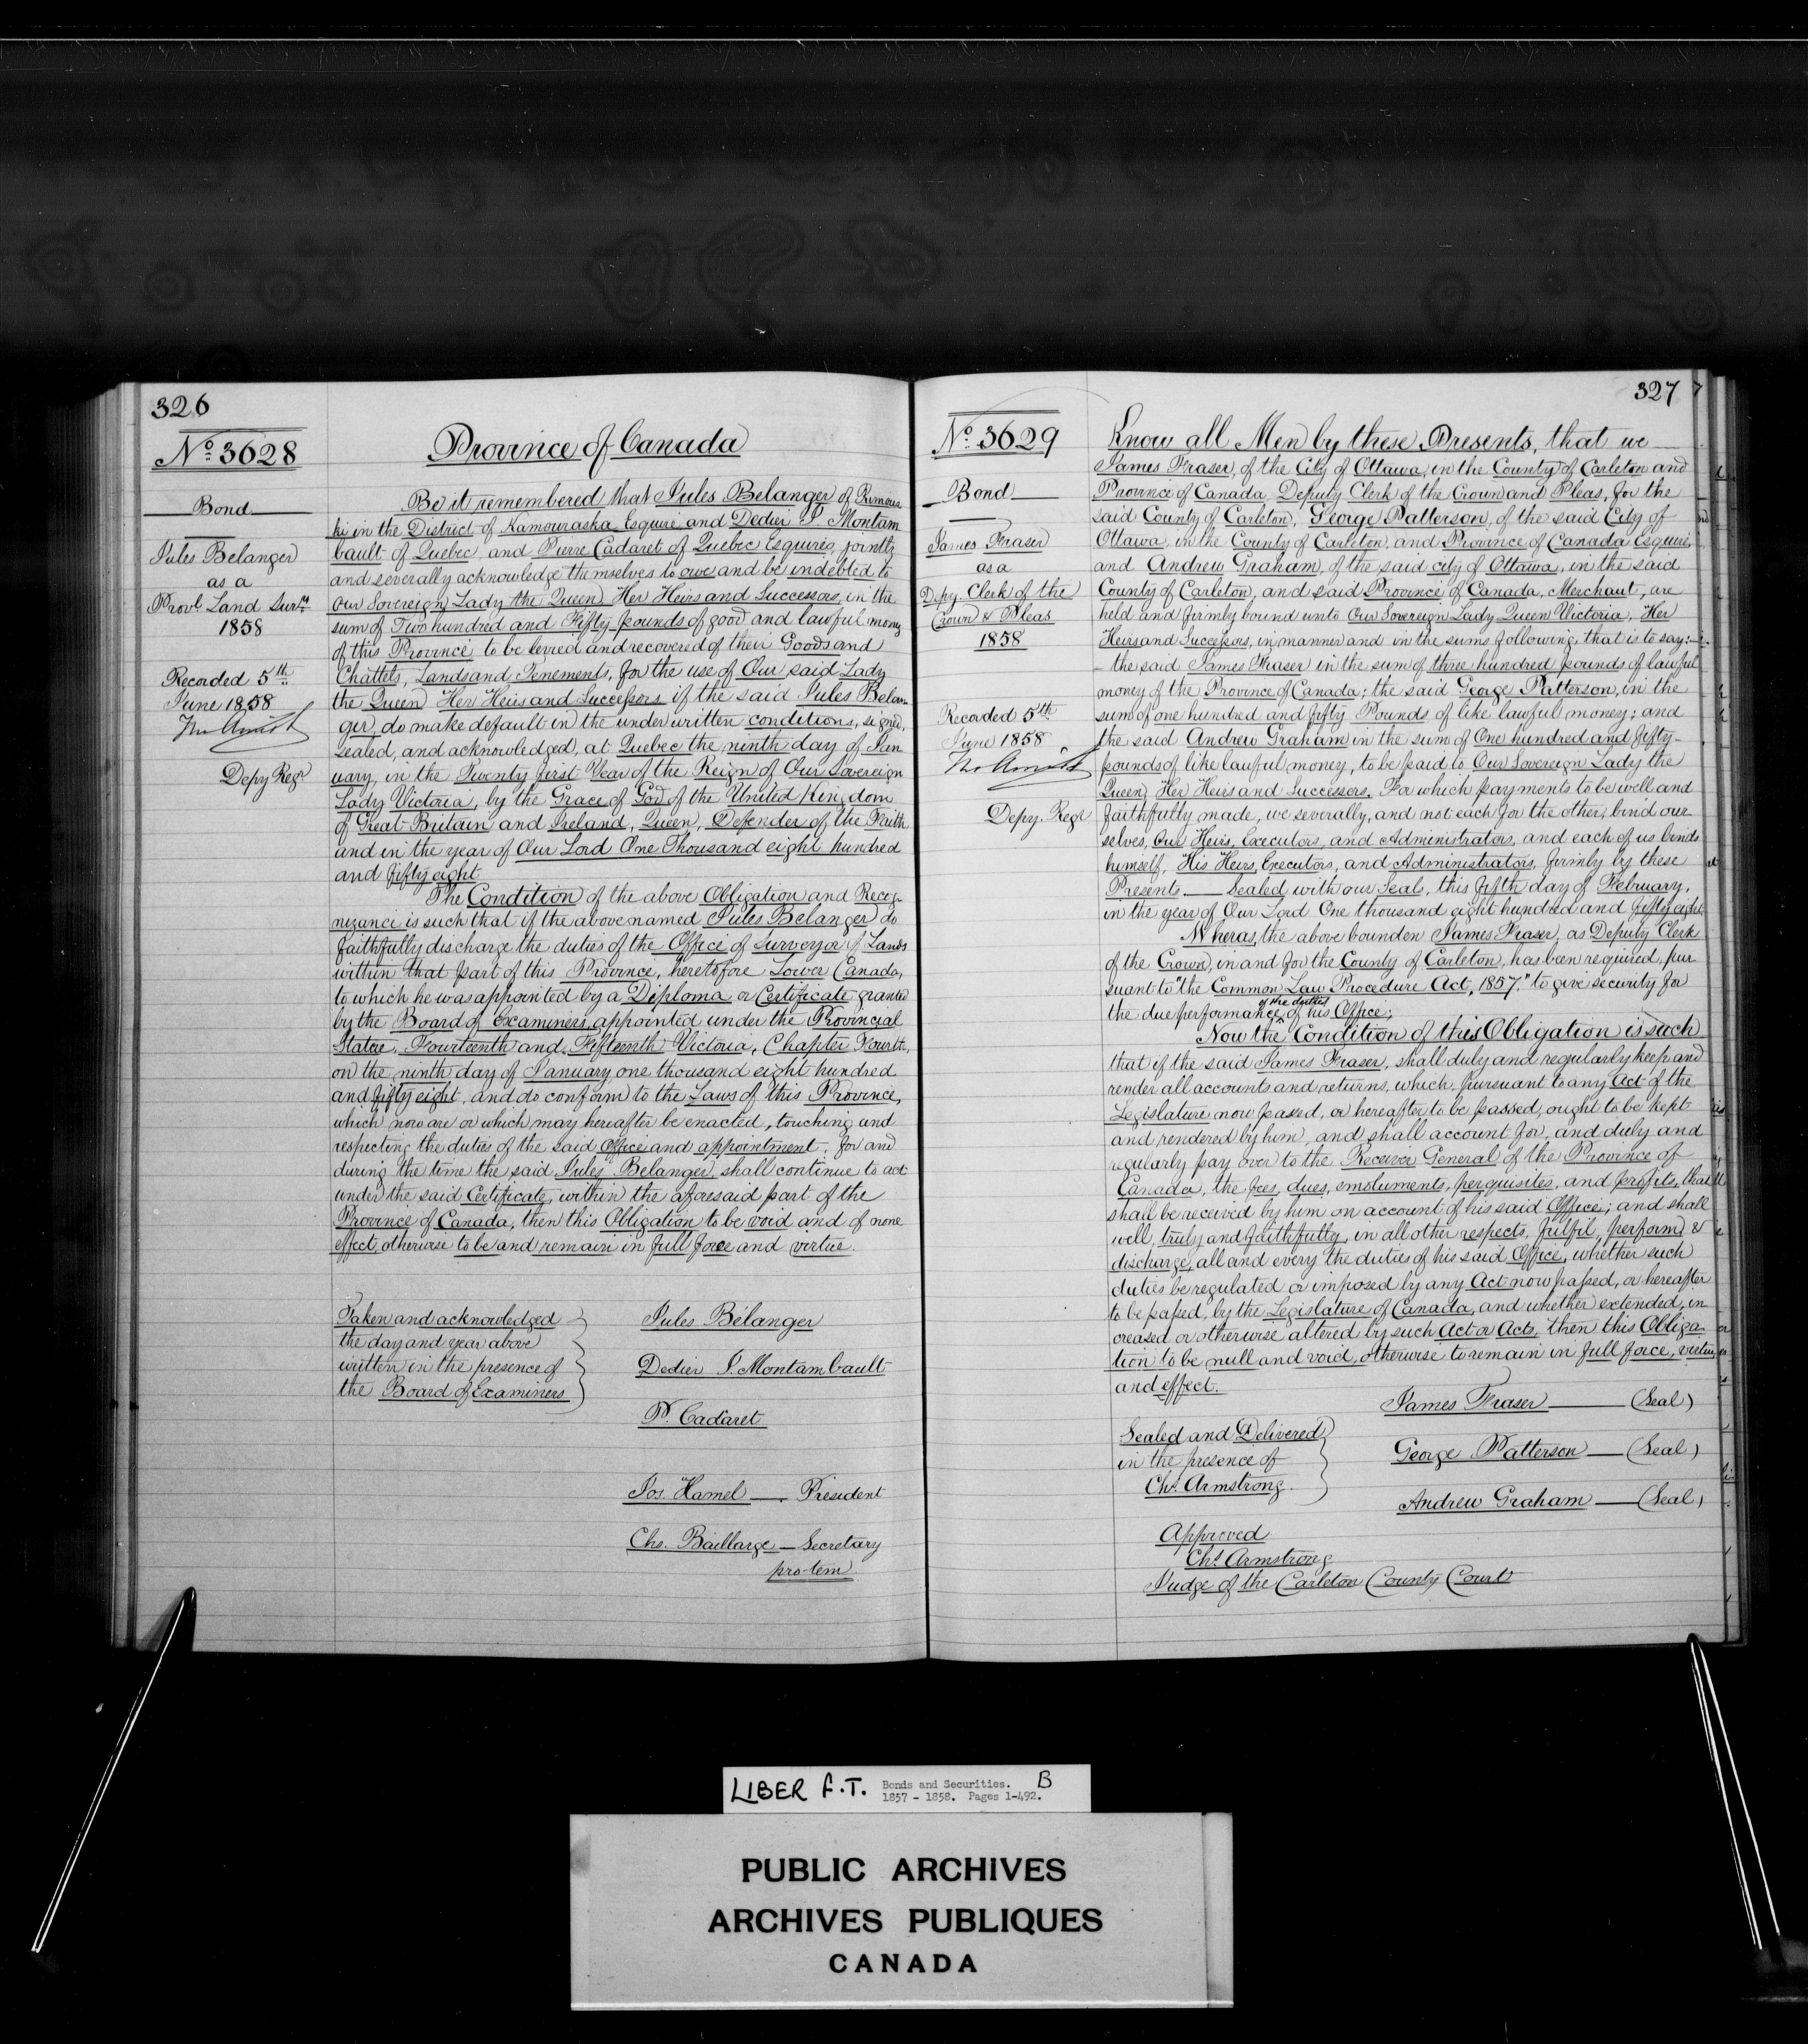 326
No. 3628
Bond
Jules Belanger
as a
Provl. Land Survr.
1858
Recorded 5th
June 1858
Depy Regr
Province of Canada
Be it remembered that Jules Belanger of Rimous
ki in the District of Kamouraska Esquire and Dedier P Montam
bault of Quebec and Pierre Cadaret of Quebec Esquires, jointly
and severally acknowledge themselves to owe and be indebted to
our Sovereign Lady the Queen Her Heirs and Successors, in the
sum of Two hundred and Fifty pounds of good and lawful money
of this Province to be levied and recovered of their Goods and
Chattels, Lands and Tenements, for the use of Our said Lady
the Queen Her Heirs and Successors if the said Jules Belan-
ger do make default in the under written conditions, signed,
sealed, and acknowledged, at Quebec the ninth day of Jan
uary, in the Twenty first Year of the Reign of Our Sovereign
Lady Victoria, by the Grace of God of the United Kingdom
of Great Britain and Ireland, Queen, Defender of the Faith
and in the year of Our Lord One Thousand eight hundred
and fifty eight
The Condition of the above Obligation and Recog-
nizance is such that if the above named Jules Belanger do
faithfully discharge the duties of the Office of Surveyor of Lands
within that part of this Province, heretofore Lower Canada,
to which he was appointed by a Diploma or Certificate granted
by the Board of Examiners appointed under the Provincial
Statue, Fourteenth and Fifteenth Victoria, Chapter Fourth,
on the ninth day of January one thousand eight hundred
and fifty eight, and do conform to the Laws of this Province,
which now are or which may hereafter be enacted, touching and
respecting the duties of the said Office and appointment, for and
during the time the said Jules Belanger, shall continue to act
under the said Certificate, within the aforesaid part of the
Province of Canada, then this Obligation to be void and of none
effect, otherwise to be and remain in full force and virtue.
Taken and acknowledged
the day and year above
written in the presence of
the Board of Examiners
Jules Bélanger
Dedier P. Montambault
P. Cadaret
Jos. Hamel — President
Chs. Baillarge — Secretary
pro-tem
327
No. 3629
Bond
James Fraser
as a
Depy. Clerk of the
Crown & Pleas
1858
Recorded 5th
June 1858
Depy. Regr
Know all Men by these Presents, that we
James Fraser, of the City of Ottawa, in the County of Carleton and
Province of Canada Deputy Clerk of the Crown and Pleas, for the
said County of Carleton, George Patterson, of the said City of
Ottawa, in the County of Carleton, and Province of Canada Esquire,
and Andrew Graham, of the said city of Ottawa, in the said
County of Carleton, and said Province of Canada, Merchant, are
held and firmly bound unto Our Sovereign Lady Queen Victoria, Her
Heirs and Successors, in manner and in the sums following, that is to say:—
— the said James Fraser in the sum of three hundred pounds of lawful
money of the Province of Canada; the said George Patterson, in the
sum of one hundred and fifty Pounds of like lawful money; and
the said Andrew Graham in the sum of One hundred and fifty
pounds of like lawful money, to be paid to Our Sovereign Lady the
Queen, Her Heirs and Successors. For which payments to be well and
faithfully made, we severally, and not each for the other, bind our
selves, Our Heirs, Executors, and Administrators, and each of us binds
himself, His Heirs, Executors, and Administrators, firmly by these
Presents. — Sealed with our Seals, this fifth day of February,
in the year of Our Lord One thousand eight hundred and fifty eight.
Wheras, the above bounden James Fraser, as Deputy Clerk
of the Crown, in and for the County of Carleton, has been required, pur
suant to "the Common Law Procedure Act, 1857," to give security for
the due performance of the duties of his Office;
Now the Condition of this Obligation is such
that if the said James Fraser, shall duly and regularly keep and
render all accounts and returns, which, pursuant to any Act of the
Legislature now passed, or hereafter to be passed, ought to be kept
and rendered by him, and shall account for, and duly and
regularly pay over to the Receiver General of the Province of
Canada, the fees, dues, emoluments, perquisites, and profits, that
shall be received by him on account of his said Office; and shall
well, truly and faithfully, in all other respects, fulfil, perform &
discharge, all and every the duties of his said Office, whether such
duties be regulated or imposed by any Act now passed, or hereafter
to be passed, by the Legislature of Canada, and whether extended, in
creased or otherwise altered by such Act or Acts, then this Obliga
tion to be null and void, otherwise to remain in full force, virtue
and effect.
James Fraser — (Seal)
Sealed and Delivered
in the presence of
Chs. Armstrong.
George Patterson — (Seal)
Andrew Graham — (Seal)
Approved
Chs. Armstrong
Judge of the Carleton County Court
LIBER F.T. Bonds and Securities. B
1857 - 1858. Pages 1-492.
PUBLIC ARCHIVES
ARCHIVES PUBLIQUES
CANADA